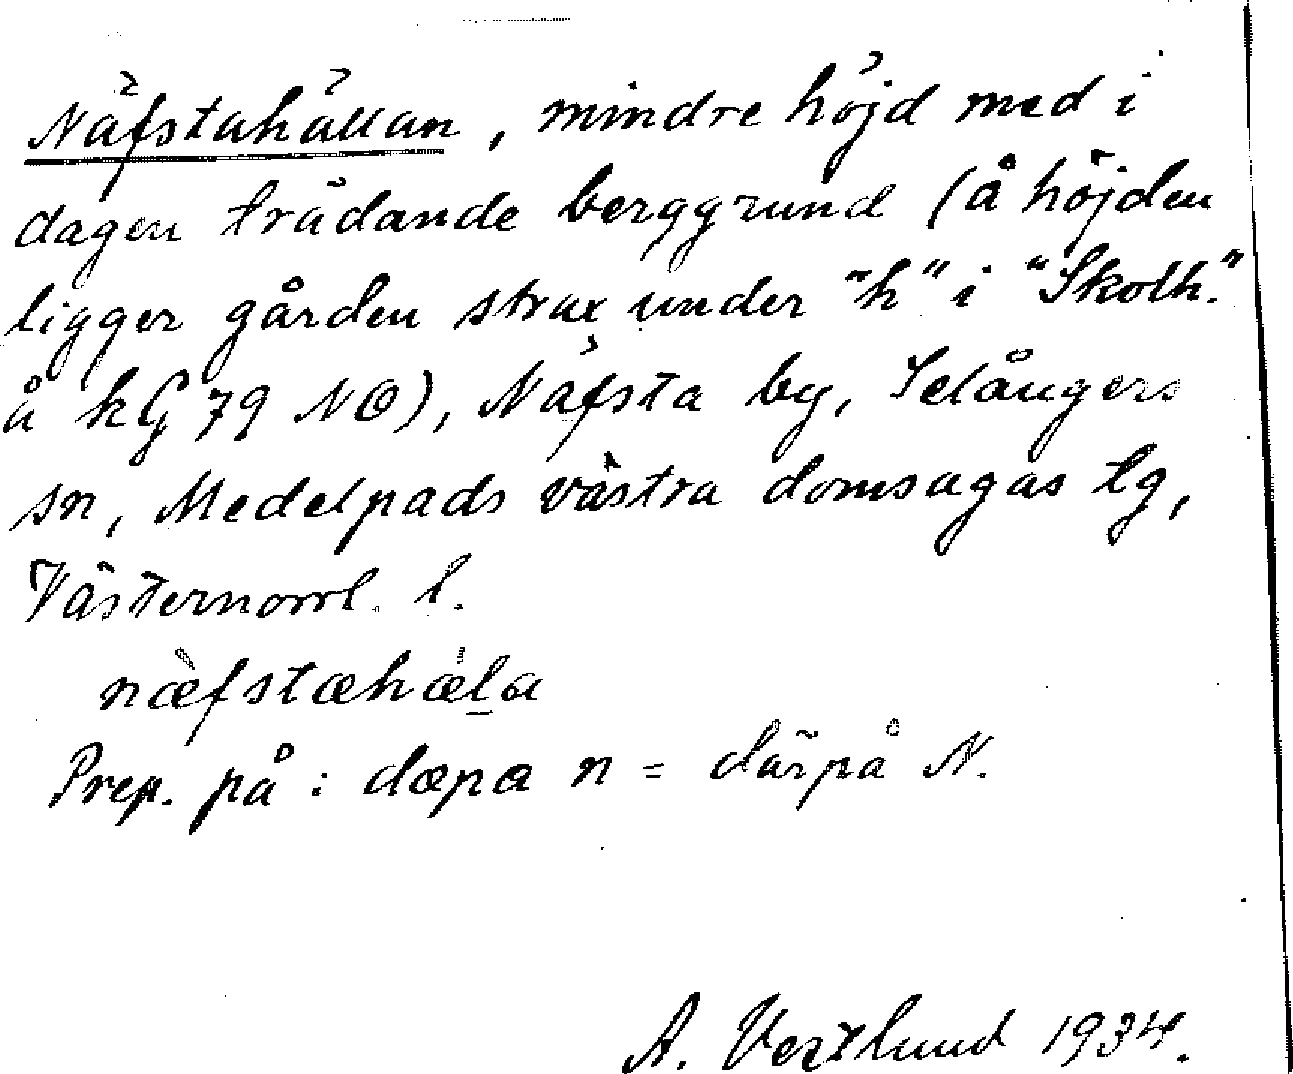 Näfstahällan, mindre höjd med i
dagen trädande berggrund (å höjden
ligger gården strax under "h" i "Skolh."
å kG 79 NO), Näfsta by, Selångers
sn, Medelpads västra domsagas tg,
Västernorrl. l.
næfstæhæla
Prep. på: dæpa n = därpå N.
A. Vestlund 1934.